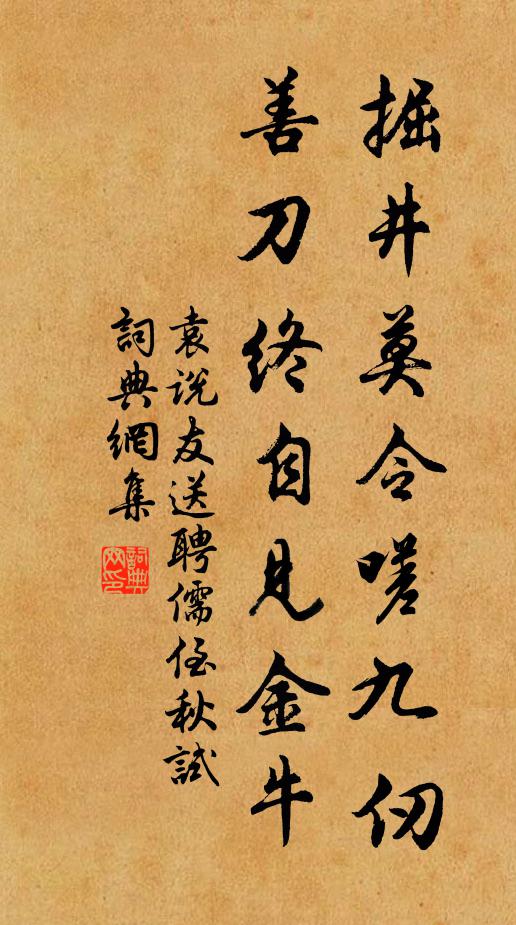 掘井莫令嗟九仞
善刀终自见金牛
袁说友送聘儒侄秋試
詞典網集
詞典网印